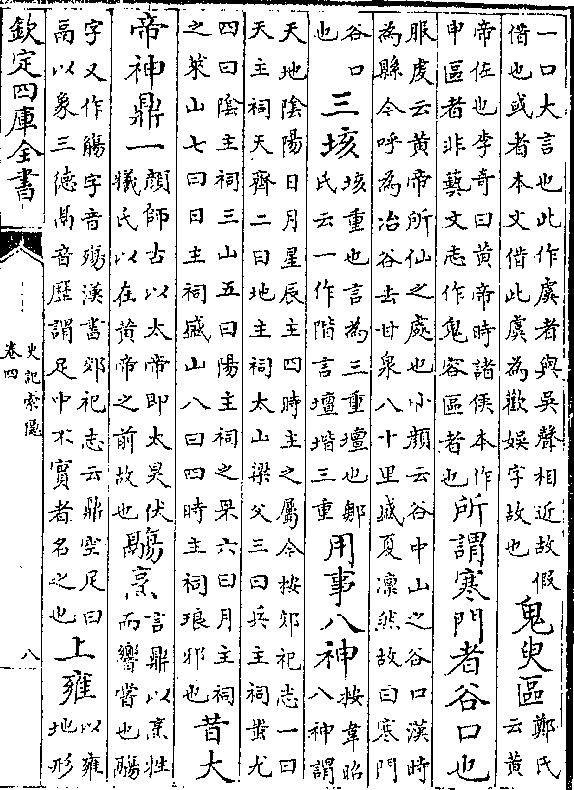 一口大言也此作虞者與吳聲相近故假
借也或者本文借此虞為歡娛字故也
鬼臾區
鄭氏
云黄
帝佐也李竒曰黄帝時諸侯本作
申區者非藝文志作鬼容區者也
所謂寒門者谷口也
服虔云黄帝所仙之處也小顔云谷中山之谷口漢時
為縣今呼為冶谷去甘泉八十里盛夏凛然故曰寒門
谷口
也
三垓
垓重也言為三重壇也鄭
氏云一作階言壇堦三重
用事八神
按韋昭
八神謂
天地陰陽日月星辰主四時主之屬今按郊祀志一曰
天主祠天齊二曰地主祠太山梁父三曰兵主祠蚩尤
四曰陰主祠三山五曰陽主祠之罘六曰月主祠
之莱山七曰日主祠盛山八曰四時主祠琅邪也
昔大
帝神鼎一
顔師古以太帝即太昊伏
犧氏以在黄帝之前故也
鬺烹
言鼎以烹牲
而饗嘗也鬺
字又作觴字音殤漢書郊祀志云鼎空足曰
鬲以象三德鬲音歷謂足中不實者名之也
上雍
以雍
地形
欽定四庫全書
史記索隱
卷四
八